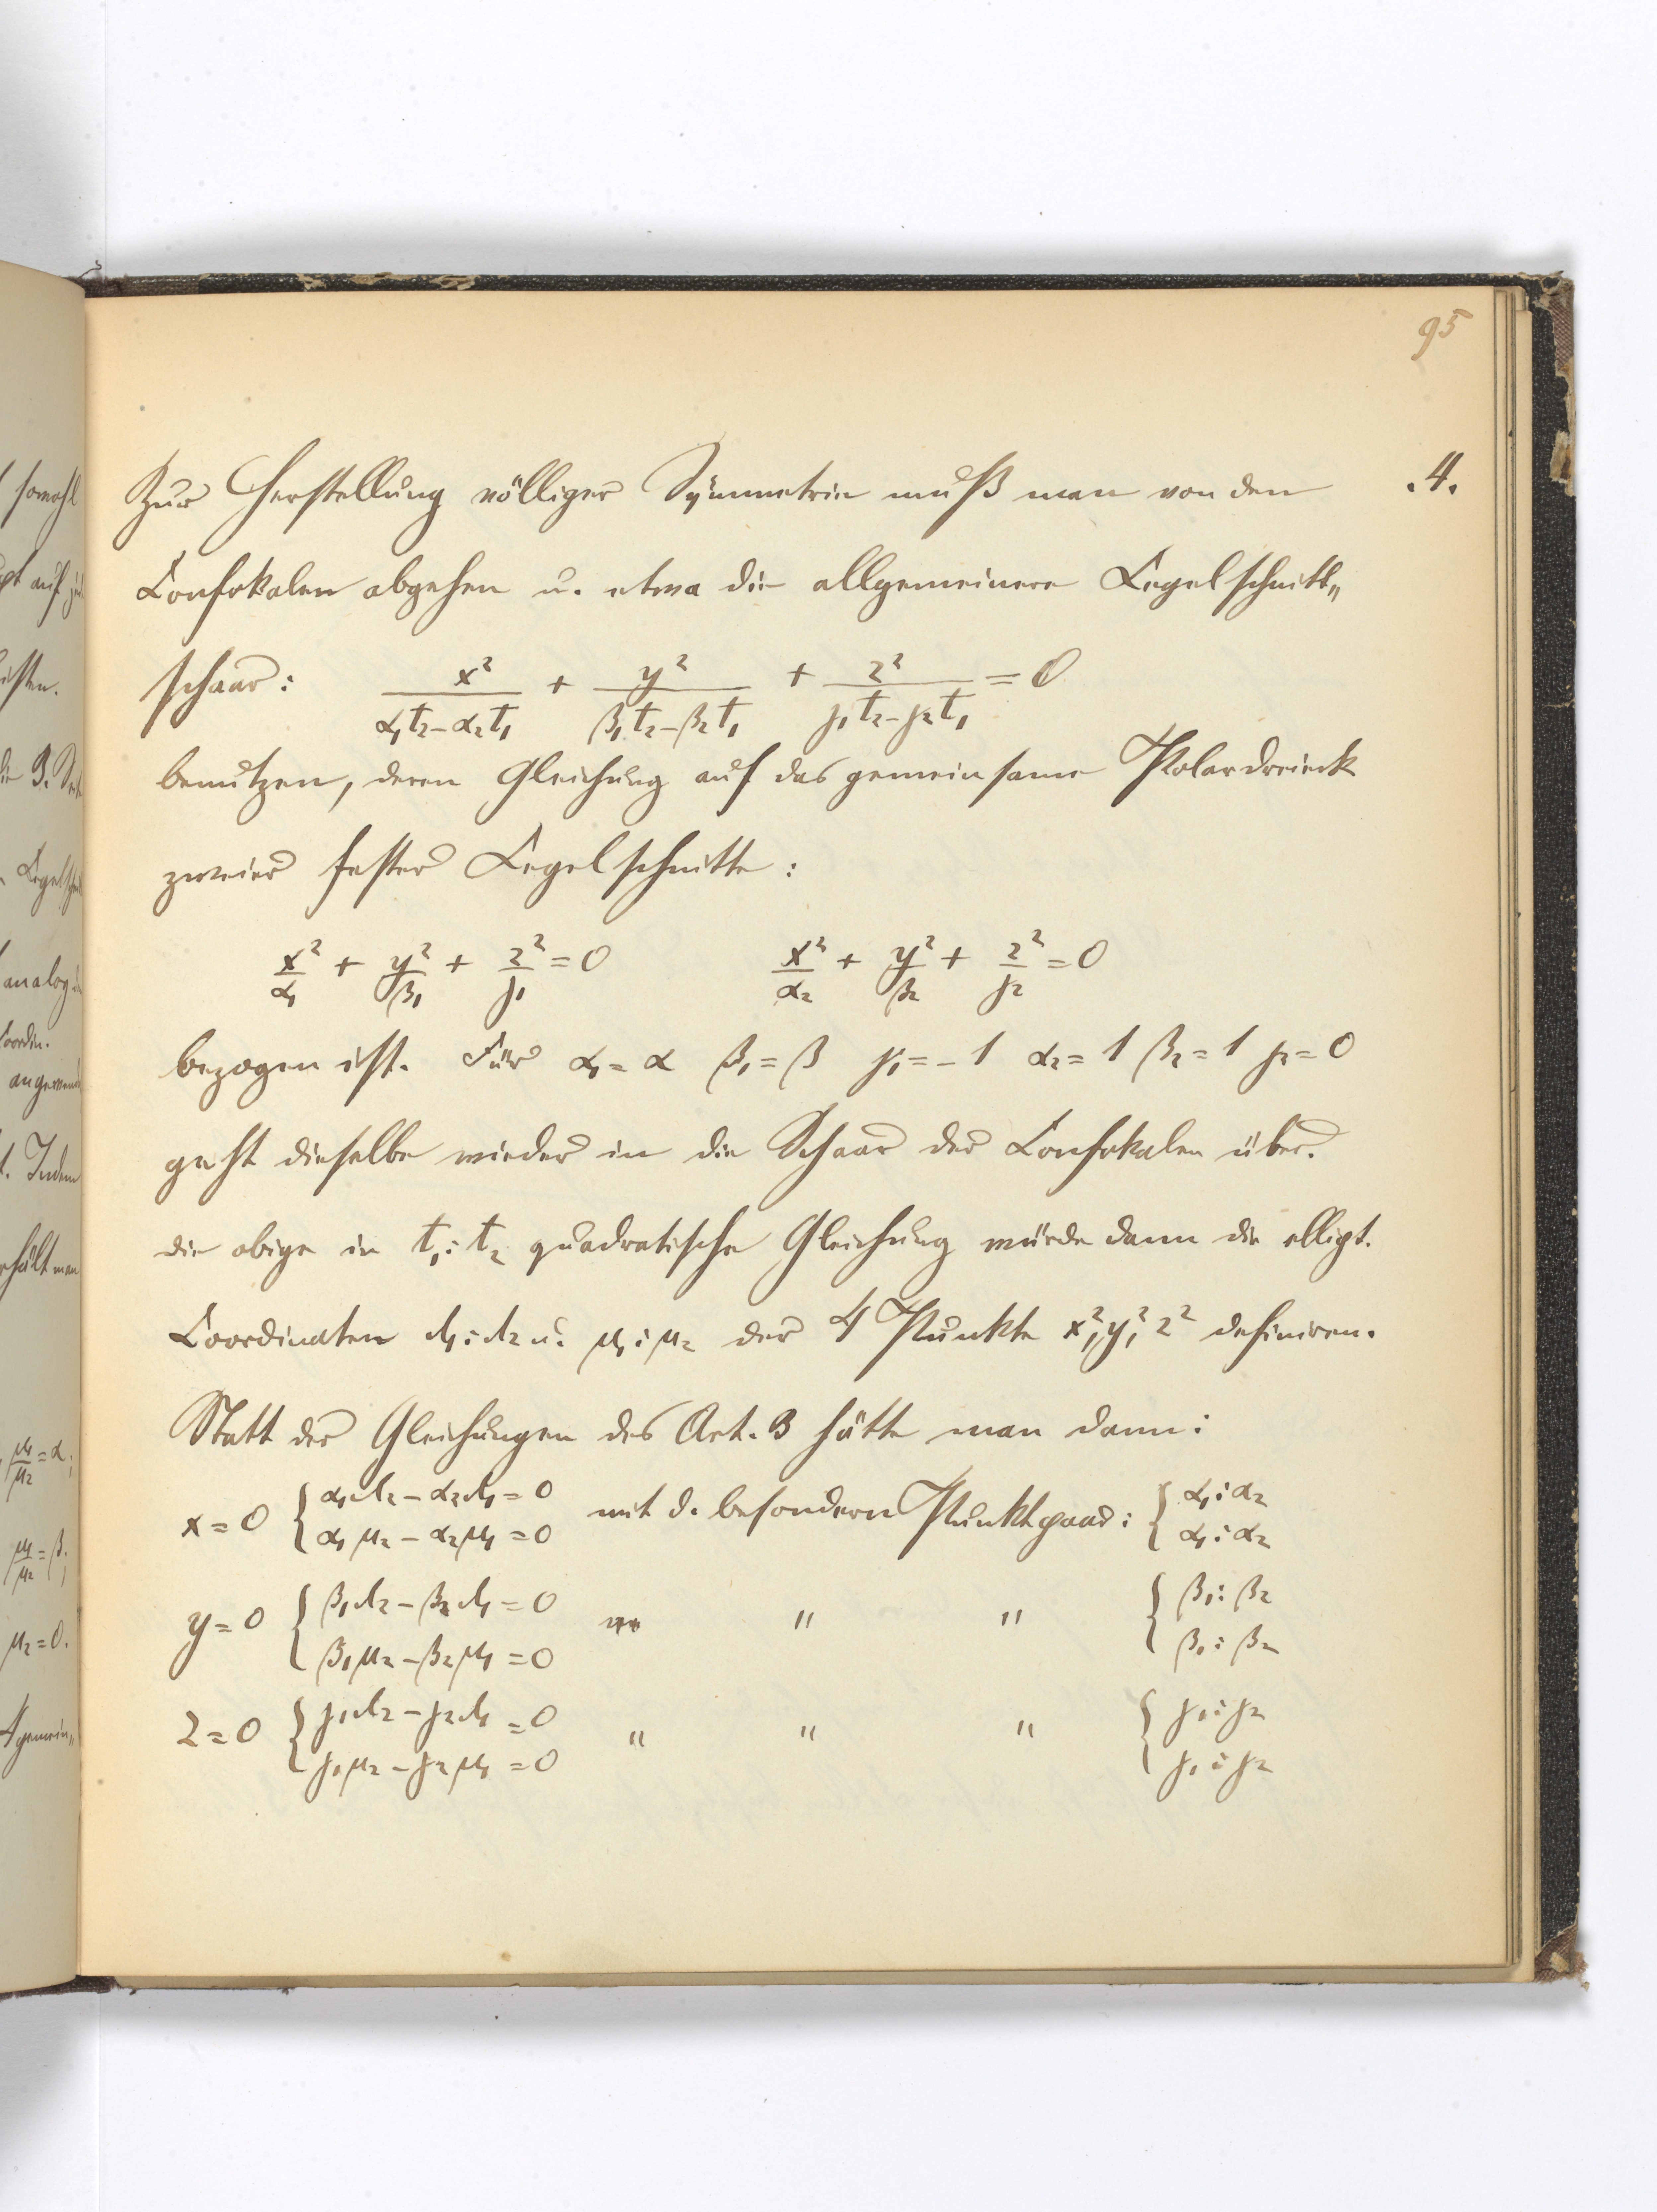 95
Zur Herstellung völliger Symmetrie muß man von den .4.
Confokalen abgehen u. etwa die allgemeinere Kegelschnitt„
schaar: x²/(α₁t₂−α₂t₁) + y²/(β₁t₂−β₂t₁) + z²/(γ₁t₂−γ₂t₁) = 0
benutzen, deren Gleichung auf das gemeinsame Polardreieck
zweier fester Kegelschnitte:
x²/α₁ + y²/β₁ + z²/γ₁ = 0 x²/α₂ + y²/β₂ + z²/γ₂ = 0
bezogen ist. Für α₁ = α β₁ = β γ₁ = −1 α₂ = 1 β₂ = 1 γ₂ = 0
geht dieselbe wieder in die Schaar der Confokalen über.
die obige in t₁:t₂ quadratische Gleichung würde dann die ellipt.
Coordinaten λ₁:λ₂ u. μ₁:μ₂ der 4 Punkte x²,y²,z² definiren.
Statt der Gleichungen des Art. 3 hätte man dann:
x = 0 { α₁λ₂ − α₂λ₁ = 0 mit d. besondern Punktpaar: { α₁:α₂
α₁μ₂ − α₂μ₁ = 0 α₁:α₂
y = 0 { β₁λ₂ − β₂λ₁ = 0 " " " { β₁:β₂
β₁μ₂ − β₂μ₁ = 0 β₁:β₂
z = 0 { γ₁λ₂ − γ₂λ₁ = 0 " " " { γ₁:γ₂
γ₁μ₂ − γ₂μ₁ = 0 γ₁:γ₂